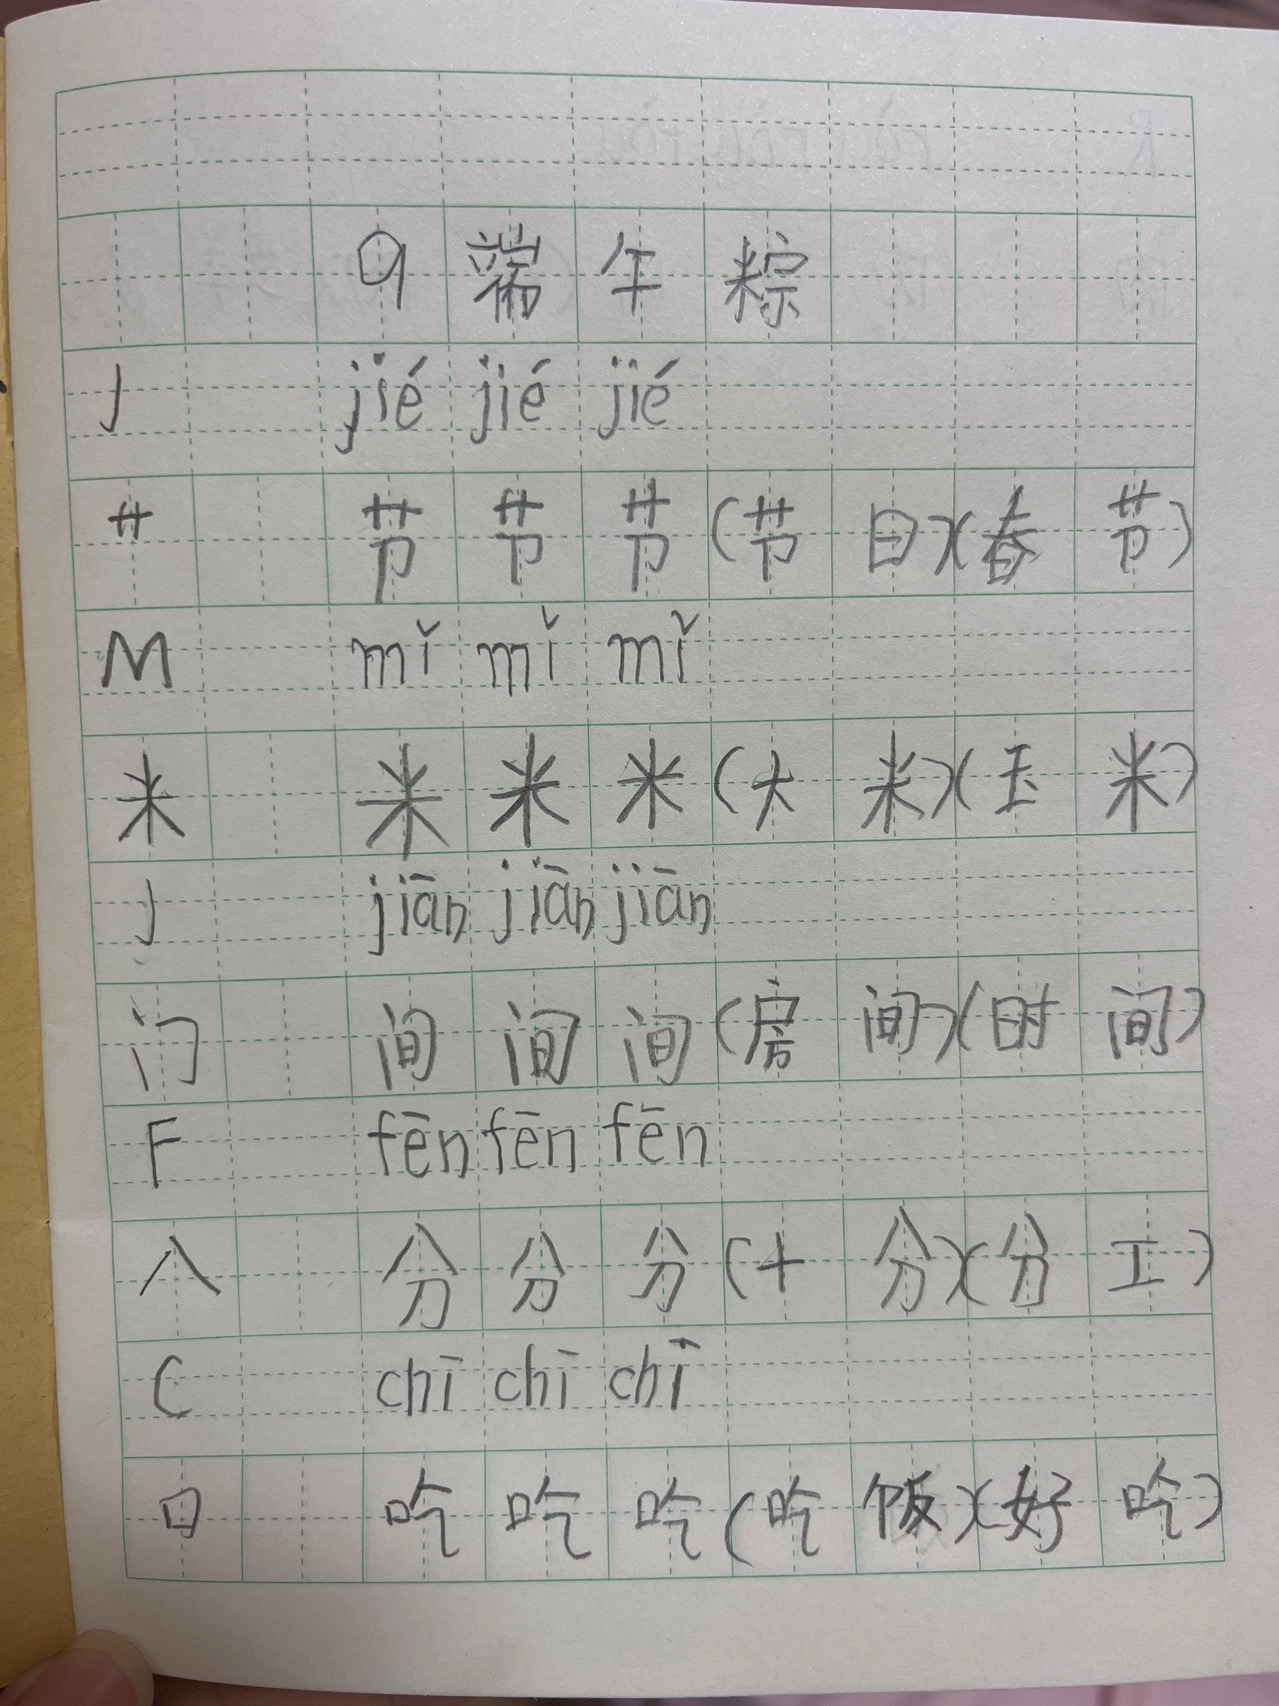 9 端 午 粽
J jié jié jié
艹 节 节 节 (节 日)(春 节)
M mǐ mǐ mǐ
米 米 米 米 (大 米)(玉 米)
J jiān jiān jiān
门 间 间 间 (房 间)(时 间)
F fēn fēn fēn
八 分 分 分 (十 分)(分 工)
C chī chī chī
口 吃 吃 吃 (吃 饭)(好 吃)